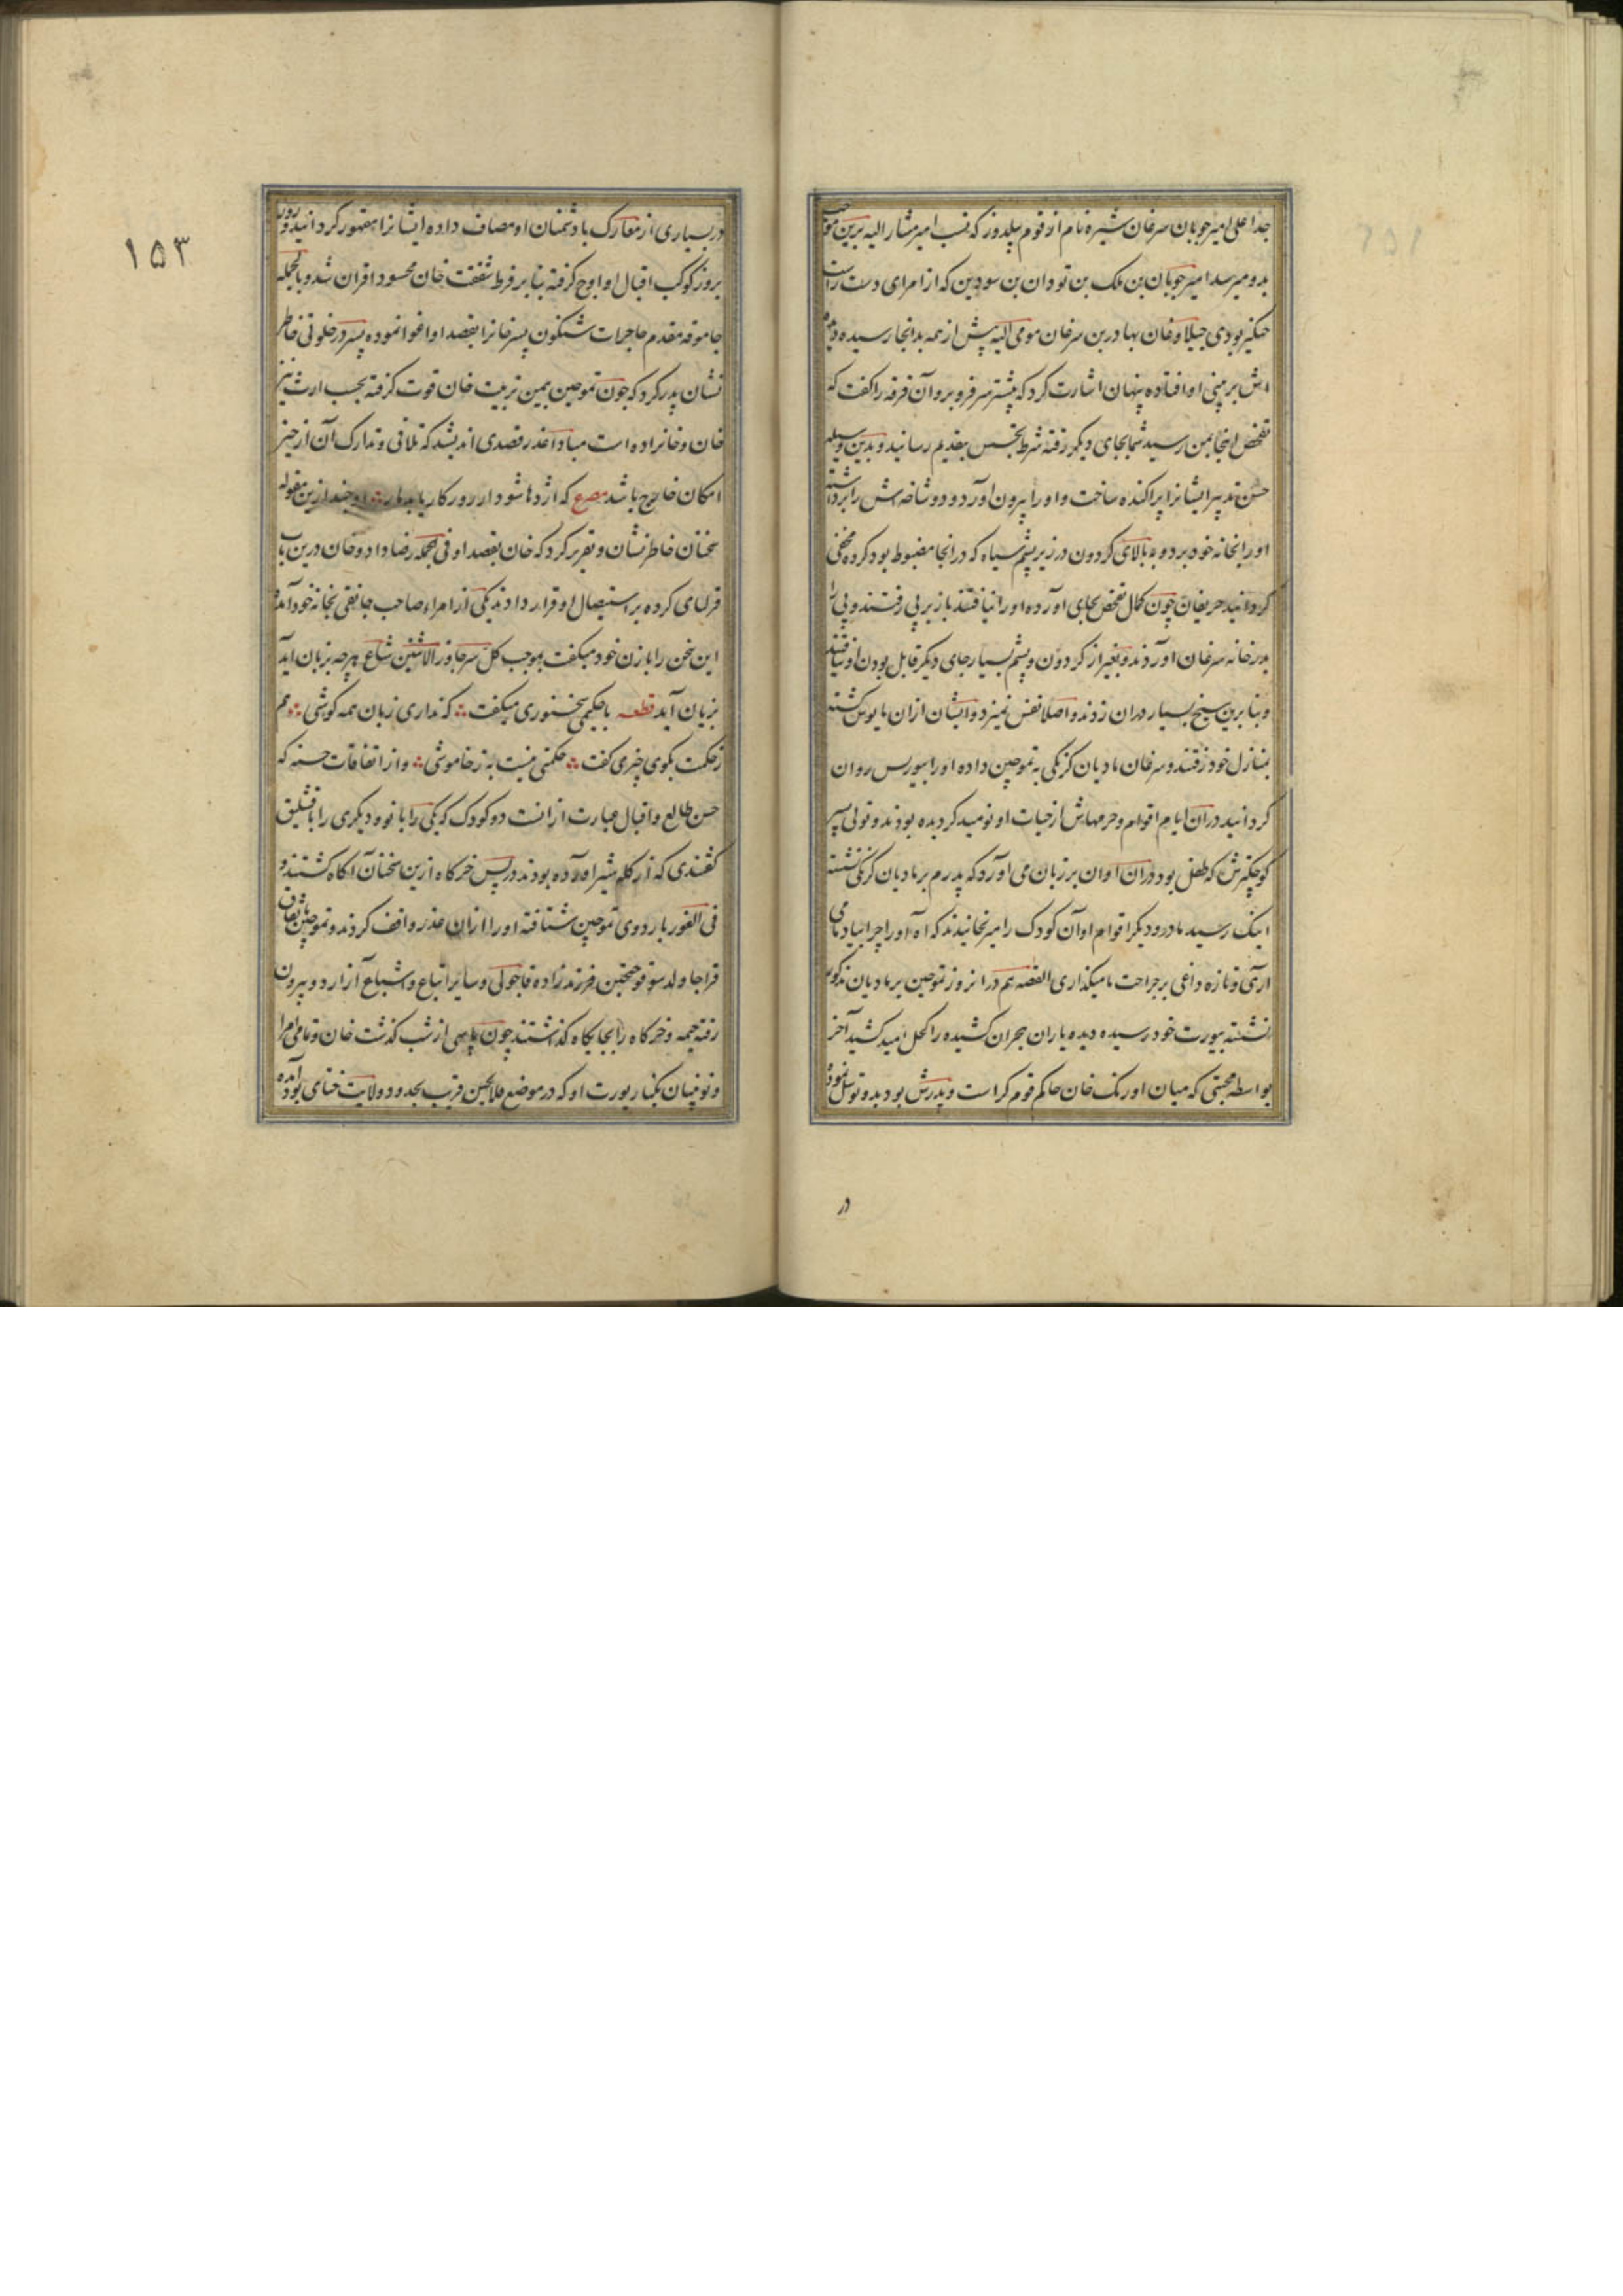 جد اعلی امیر چوبان سرغان شیره نام از قوم سلدوز که نسب امیر مشار الیه برین موجب
بدو میرسد امیر چوبان بن ملک بن تودان بن سودین که از امرای دست راست
چنگیز بودی جیلاوغان بهادر بن سرغان مومی الیه پیش از همه بدانجا رسیده دیده
اش بر بینی او افتاده پنهان اشارت کرد که بیشتر سر فرو برو آن فرقه را گفت که
تفحص اینجا بمن رسید شما بجای دیگر رفته شرط تجسس بتقدیم رسانید و بدین وسیله
حسن تدبیر ایشانرا پراکنده ساخت و او را بیرون آورد و دوشاخه اش را برداشته
او را بخانه خود برد و بالای گردون در زیر پشم سیاه که در آنجا مضبوط بود کرده مخفی
گردانید حریفان چون کمال تفحص بجای آورده او را نیافتند باز بر پی رفتند و پی را
بدر خانه سرغان آوردند و بغیر از گردون و پشم بسیار جای دیگر قابل بودن او نیافتند
و بنابرین سیخ بسیار در آن زدند و اصلا نفس نمیزد و ایشان از آن مایوس گشته
بمنازل خود رفتند و سرغان مادیان کرنگی به تموجین داده او را بیورس روان
گردانید در آن ایام اقوام و حرمهاش از حیات او نومید گردیده بودند و تولی پسر
کوچکترش که طفل بود در آن اوان بر زبان می آورد که پدرم بر مادیان کرنگ نشسته
اینک رسید مادر و دیگر اقوام او آن کودک را میرنجانیدند که اه او را چرا بیاد ما می
آری و تازه داغی بر جراحت ما میگذاری القصه هم در آنروز تموجین بر مادیان مذکور
نشسته بیورت خود رسیده دیده یاران هجران کشیده را کحل امید کشید آخر
بواسطه محبتی که میان اورنک خان حاکم قوم کراست و پدرش بود بدو توسل نموده
در
۱۵۳
در بسیاری از معارک با دشمنان او مصاف داده ایشانرا مقهور گردانید و روز
بروز کوکب اقبال او اوج گرفته بنابر فرط شفقت خان محسود اقران شد و بالجمله
جاموقه مقدم جاجرات شنکون پسر خانرا بقصد او اغوا نموده پسر در خلوتی خاطر
نشان پدر کرد که چون تموجین بیمن تربیت خان قوت گرفته بحسب ارث نیز
خان و خانزاده است مبادا غدر قصدی اندیشد که تلافی و تدارک آن از حیز
امکان خارج باشد مصرع که اژدها شود ار روزگار یابد مار و چند ازین مقوله
سخنان خاطر نشان و تقریر کرد که خان بقصد او فی الجمله رضا داد و خان درین باب
قرلتای کرده بر استیصال او قرار دادند یکی از امراء صاحب جانقی بخانه خود آمده
این سخن را با زن خود میگفت بموجب کل سر جاوز الاثنین شاع هر چه بزبان آید
بزیان آید قطعه با حکیمی سخنوری میگفت که نداری زبان همه گوشی هم
ز حکمت بگوی چیزی گفت حکمتی نیست به ز خاموشی و از اتفاقات حسنه که
حسن طالع و اقبال عبارت از انست دو کودک که یکی را باتو و دیگری را باقشلیق
گفتندی که از گله شیر آورده بودند در پس خرگاه ازین سخنان آگاه گشتند و
فی الفور باردوی تموجین شتافته او را از آن غدر واقف کردند و تموجین باتفاق
قراجا ولد سوغوجیجن فرزندزاده قاجولی و سایر اتباع و اشیاع از اردو بیرون
رفته خیمه و خرگاه را بجایگاه گذاشتند چون پاسی از شب گذشت خان و تمامی امرا
و نوئینان بکنار یورت او که در موضع قلاجین قریب بحدود ولایت ختای بود آمده